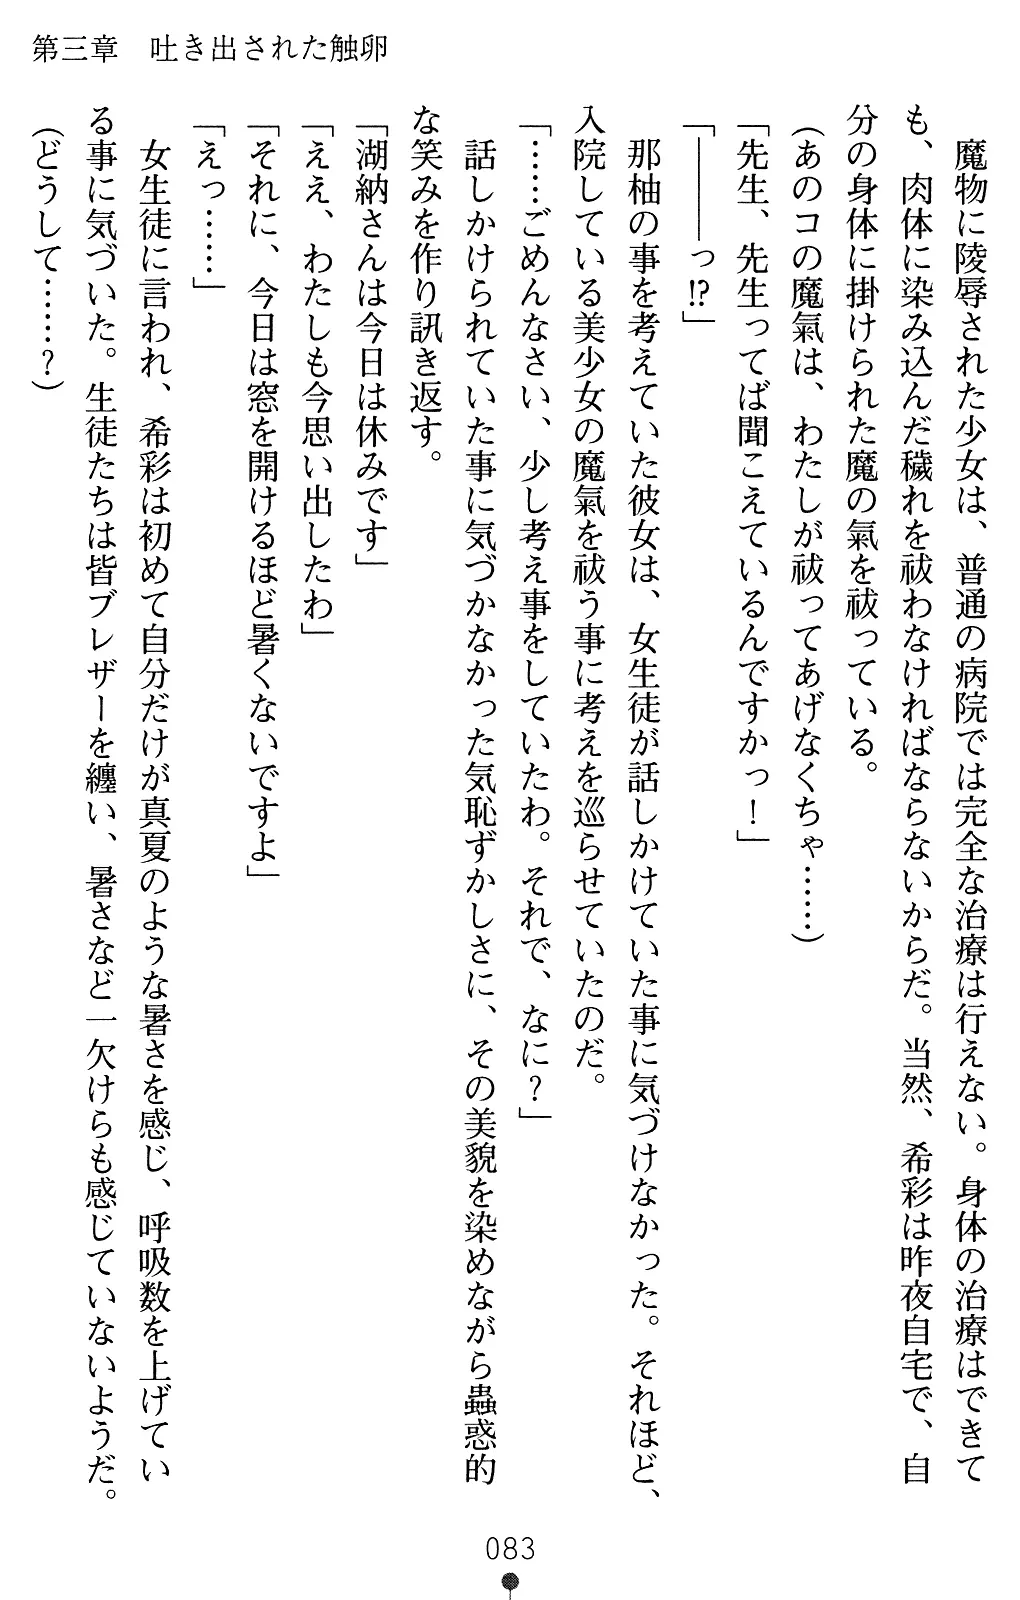 第三章　吐き出された触卵
　魔物に陵辱された少女は、普通の病院では完全な治療は行えない。身体の治療はできて
も、肉体に染み込んだ穢れを祓わなければならないからだ。当然、希彩は昨夜自宅で、自
分の身体に掛けられた魔の氣を祓っている。
（あのコの魔氣は、わたしが祓ってあげなくちゃ……）
「先生、先生ってば聞こえているんですかっ！」
「――――っ!?」
　那柚の事を考えていた彼女は、女生徒が話しかけていた事に気づけなかった。それほど、
入院している美少女の魔氣を祓う事に考えを巡らせていたのだ。
「……ごめんなさい、少し考え事をしていたわ。それで、なに？」
　話しかけられていた事に気づかなかった気恥ずかしさに、その美貌を染めながら蟲惑的
な笑みを作り訊き返す。
「湖納さんは今日は休みです」
「ええ、わたしも今思い出したわ」
「それに、今日は窓を開けるほど暑くないですよ」
「えっ……」
　女生徒に言われ、希彩は初めて自分だけが真夏のような暑さを感じ、呼吸数を上げてい
る事に気づいた。生徒たちは皆ブレザーを纏い、暑さなど一欠けらも感じていないようだ。
（どうして……？）
083